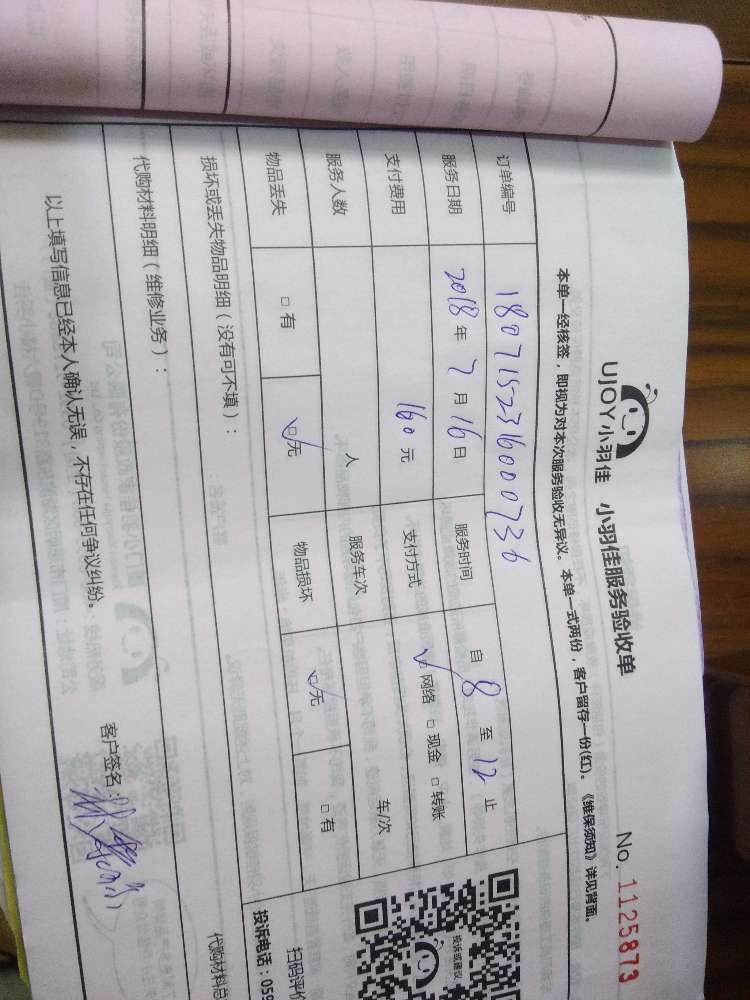 UJOY小羽佳 小羽佳服务验收单
No. 1125873
本单一经核签，即视为对本次服务验收无异议。本单一式两份，客户留存一份(红)。《维保须知》详见背面。
订单编号 180715231600073 6
服务日期 2018 年 7 月 16 日 服务时间 自 8 至 12 止
支付费用 160 元 支付方式 ☑ 网络 □ 现金 □ 转账
服务人数 人 服务车次 车/次
物品丢失 □ 有 ☑ 无 物品损坏 ☑ 无 □ 有
损坏或丢失物品明细（没有可不填）：
代购材料明细（维修业务）：
代购材料总
以上填写信息已经本人确认无误，不存在任何争议纠纷。
客户签名：
投诉或建议
扫码评价
投诉电话：059